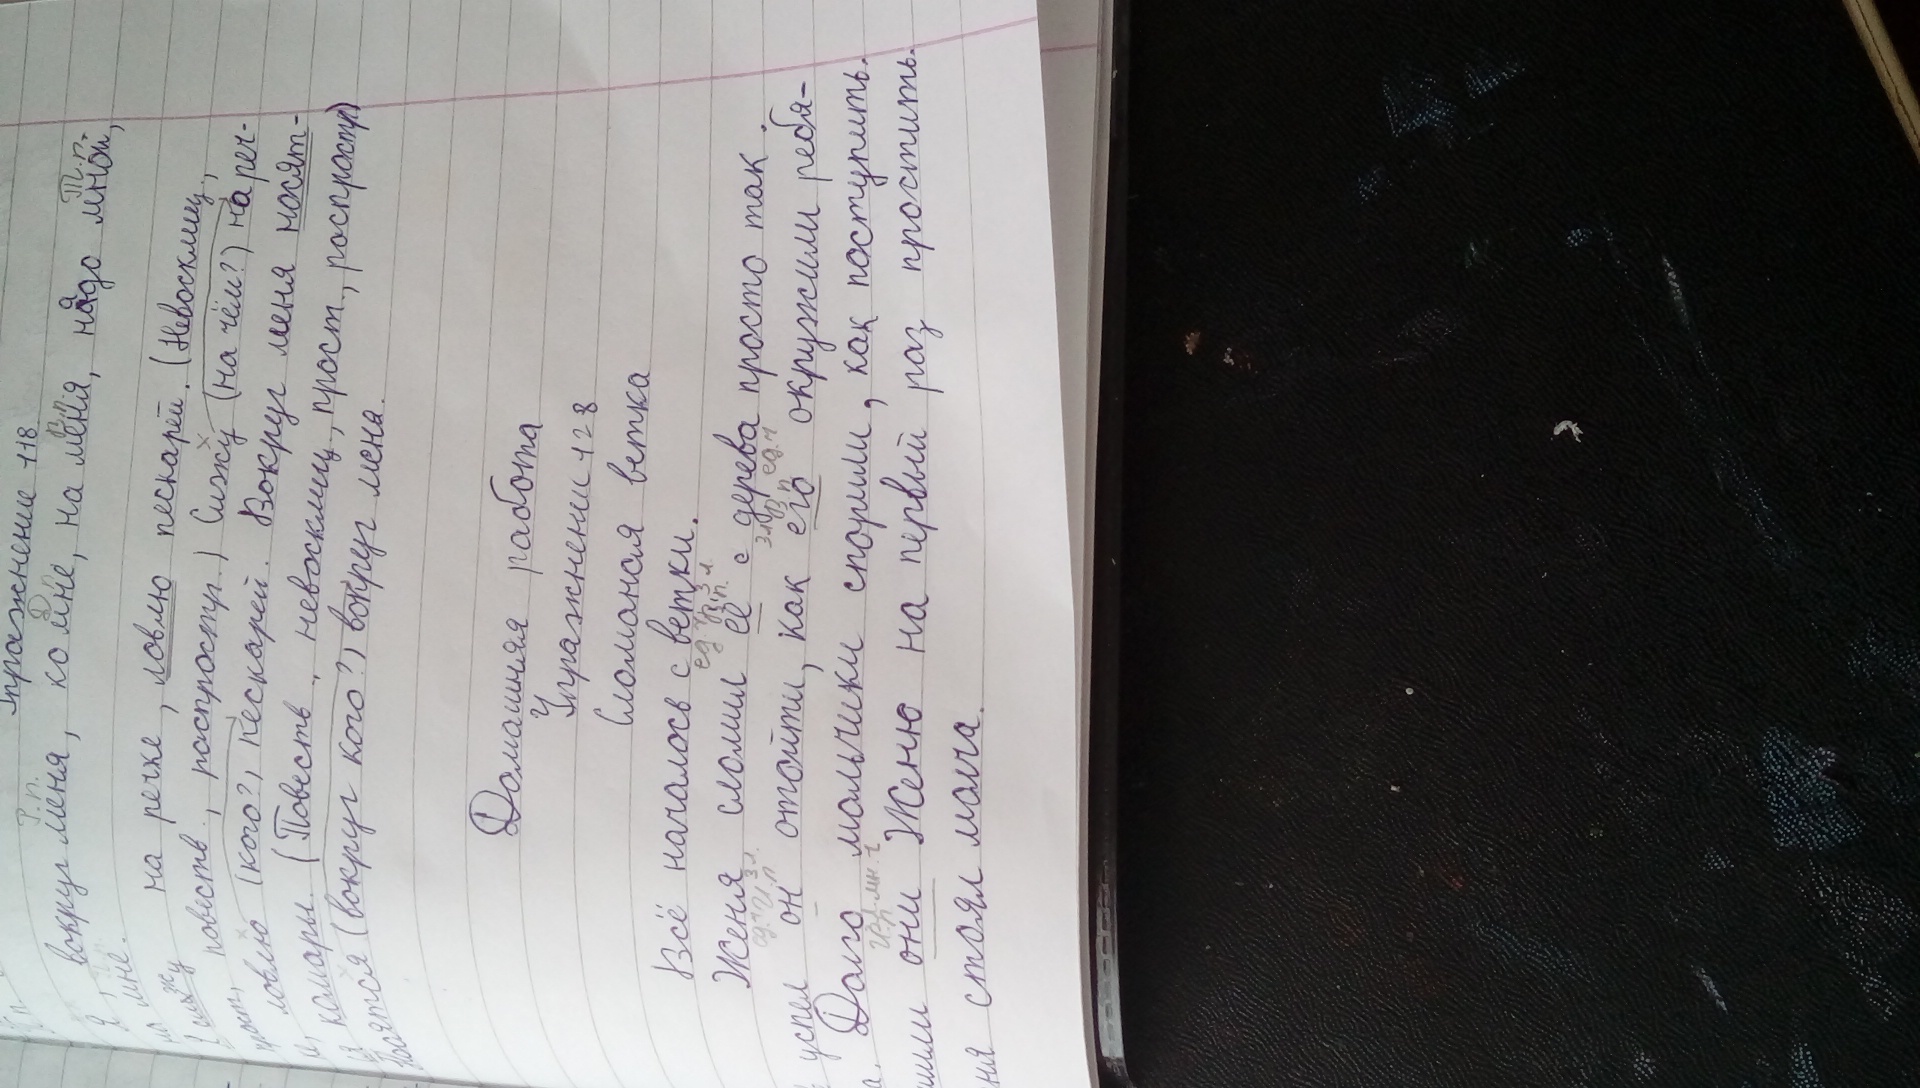 Упражнение 118
Р.п. Д.п. В.п. Т.п.
Я, вокруг меня, ко мне, на меня, надо мной,
на мне.
Я сижу на речке, ловлю пескарей. (Невосклиц.,
повеств., распростр.) Сижу (на чём?) на реч-
ловлю (кого?) пескарей. Вокруг меня носят-
комары. (Повеств., невосклиц., прост., распростр)
Носятся (вокруг кого?) вокруг мена.
Домашняя работа
Упражнени 128
Сломаная ветка
Всё началось с ветки.
ед.ч. В.п. 3 л.
Женя сломил её с дерева просто так.
ед.ч. И.п 3 л. 3 л. В.п ед.ч
успел он отойти, как его окружили ребя-
а. Долго мальчики спорили, как поступить.
И.п. мн.ч
они Женю на первый раз простить.
ня стоял молча.